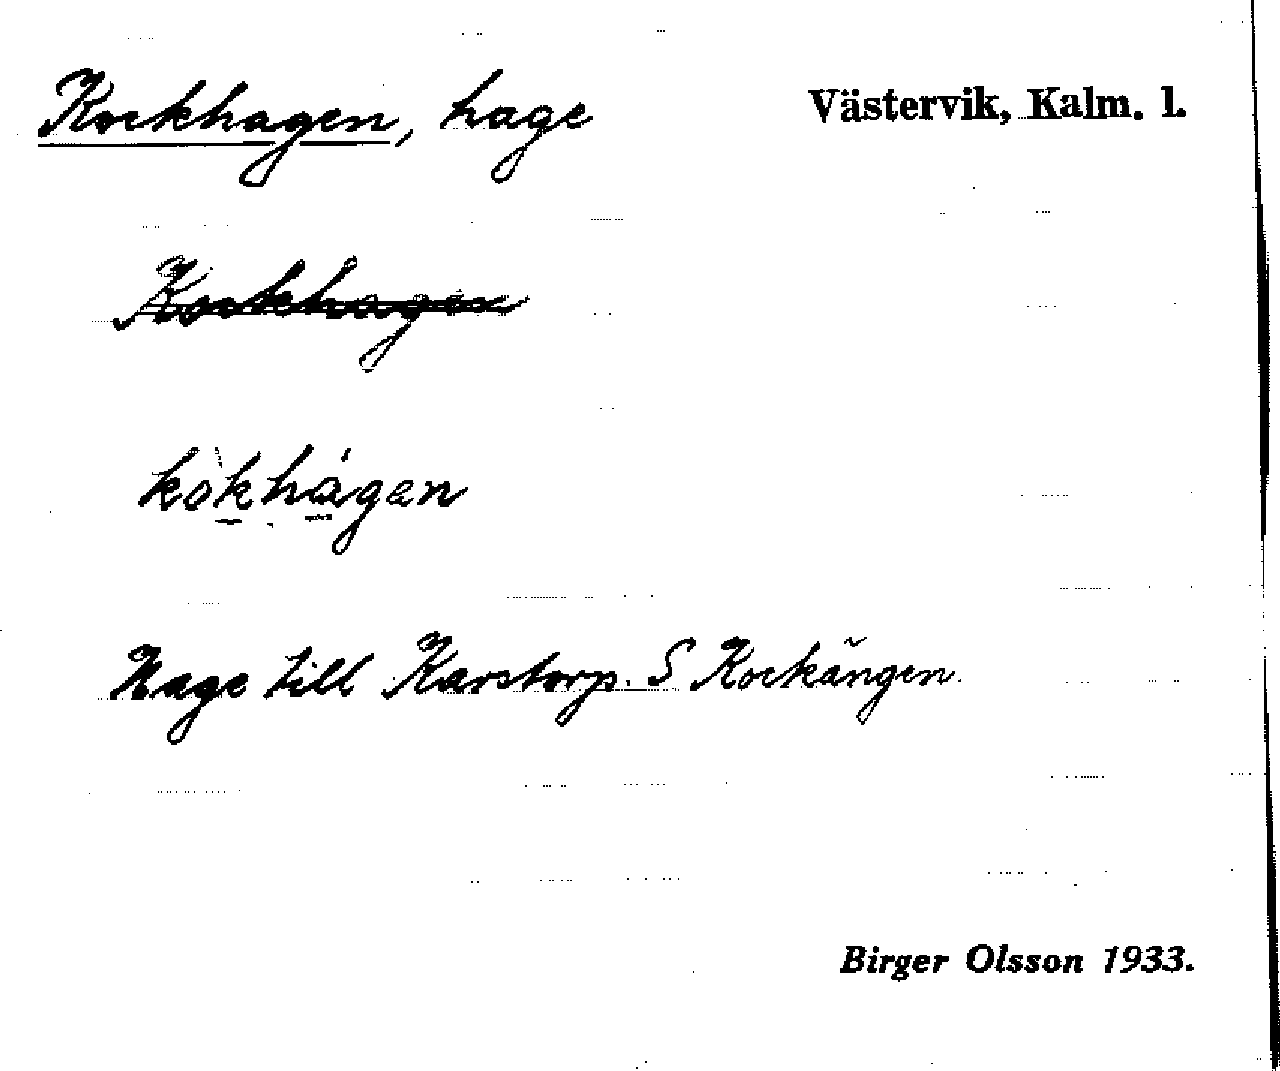 Kockhagen, hage
Västervik, Kalm. l.
Kockhagen
kòkhágen
Hage till Karstorp. S Kockängen.
Birger Olsson 1933.